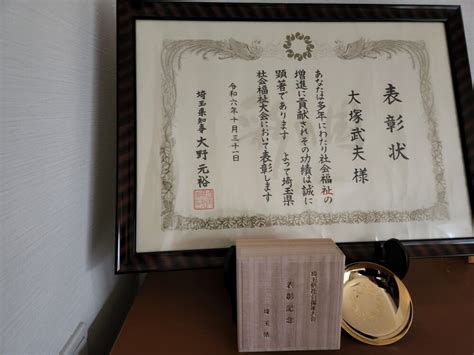 表彰状
大塚武夫様
あなたは多年にわたり社会福祉の
増進に貢献されその功績は誠に
顕著であります　よって埼玉県
社会福祉大会において表彰します
令和六年十月三十一日
埼玉県知事 大野元裕
表彰記念
埼玉県